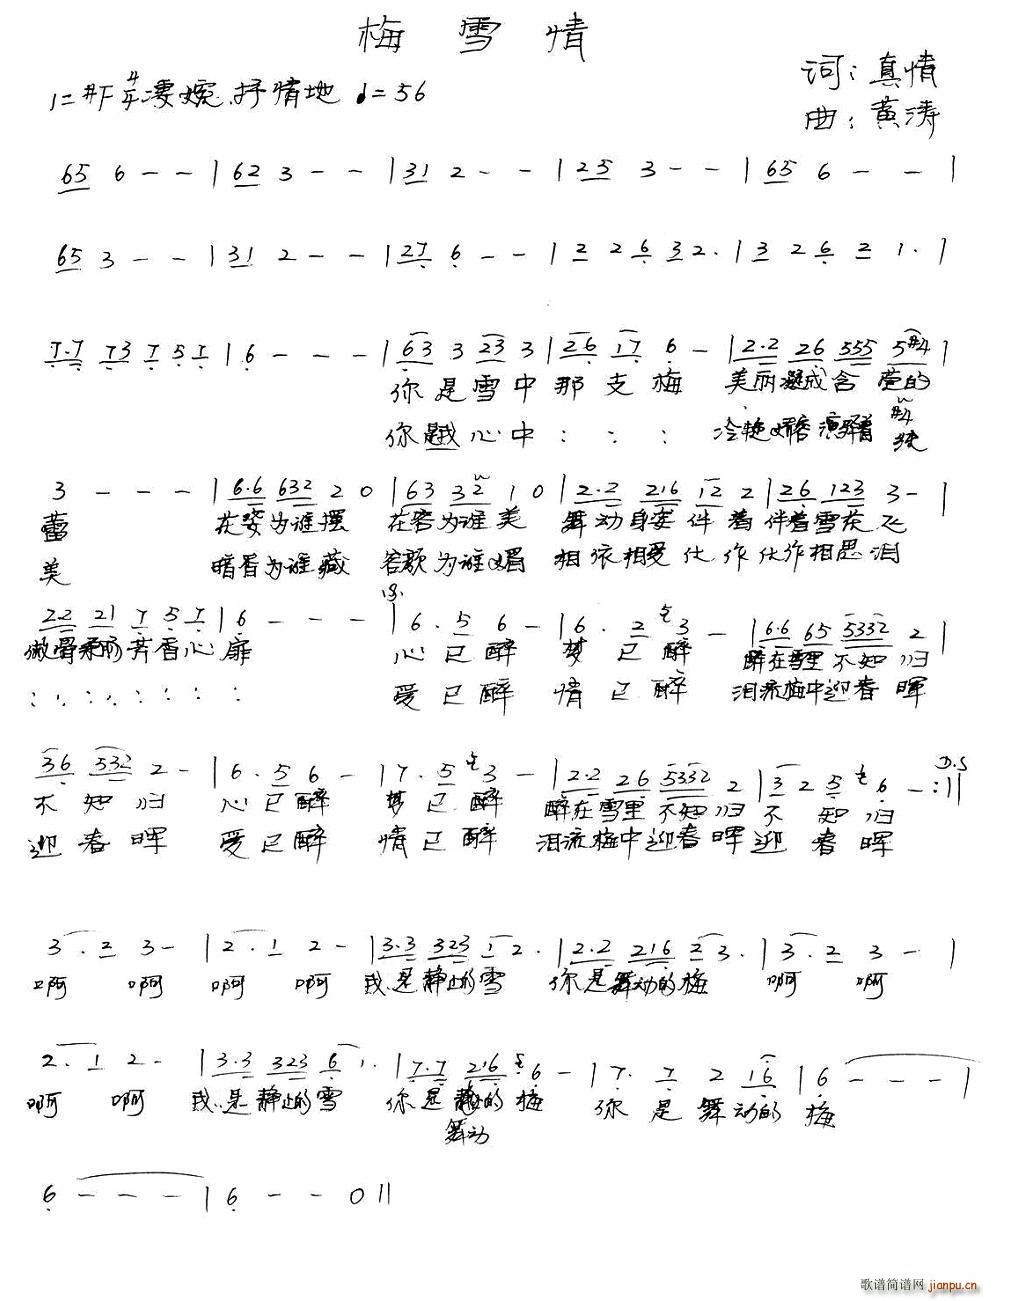 梅雪情
词：真情
1=#F 4/4 凄婉.抒情地 ♩=56
曲：黄涛
65 6 - - | 62 3 - - | 31 2 - - | 25 3 - - | 65 6 - - |
65 3 - - | 31 2 - - | 27 6 - - | 2 2 6 32. | 3 2 6 2 1. |
7.7 73 7 5 7 | 6 - - - | 63 3 23 3 | 26 17 6 - | 2.2 26 555 5#4 |
你是雪中那支梅 美丽凝成含 的
你是我心中 : : : 冷艳 #4
3 - - - | 6.6 632 2 0 | 63 32 1 0 | 2.2 216 12 2 | 26 123 3 - |
蕾 花姿为谁摆 花容为谁美 舞动身姿伴着伴着雪花飞
美 暗香为谁藏 为谁媚 相依相爱化作化作相思泪
22 21 7 5 7 | 6 - - - | 6. 5 6 - | 6. 2 3 - | 6.6 65 5332 2 |
傲骨柔肠芳香心扉 心已醉 梦已醉 醉在雪里不知归
: : : : : : : 爱已醉 情已醉 泪流梅中迎春晖
36 532 2 - | 6. 5 6 - | 7. 5 3 - | 2.2 26 5332 2 | 3 2 5 6 - :|| D.S
不知归 心已醉 梦已醉 醉在雪里不知归不知归
迎春晖 爱已醉 情已醉 泪流梅中迎春晖迎春晖
3. 2 3 - | 2. 1 2 - | 3.3 323 1 2. | 2.2 216 2 3. | 3. 2 3 - |
啊 啊 啊 啊 我是静止的雪 你是舞动的梅 啊 啊
2. 1 2 - | 3.3 323 6 1. | 7.7 216 6 - | 7. 7 2 16 | 6 - - - |
啊 啊 我是静止的雪 你是 的梅 你是舞动的梅
舞动
6 - - - | 6 - - 0 ||
歌谱简谱网 jianpu.cn